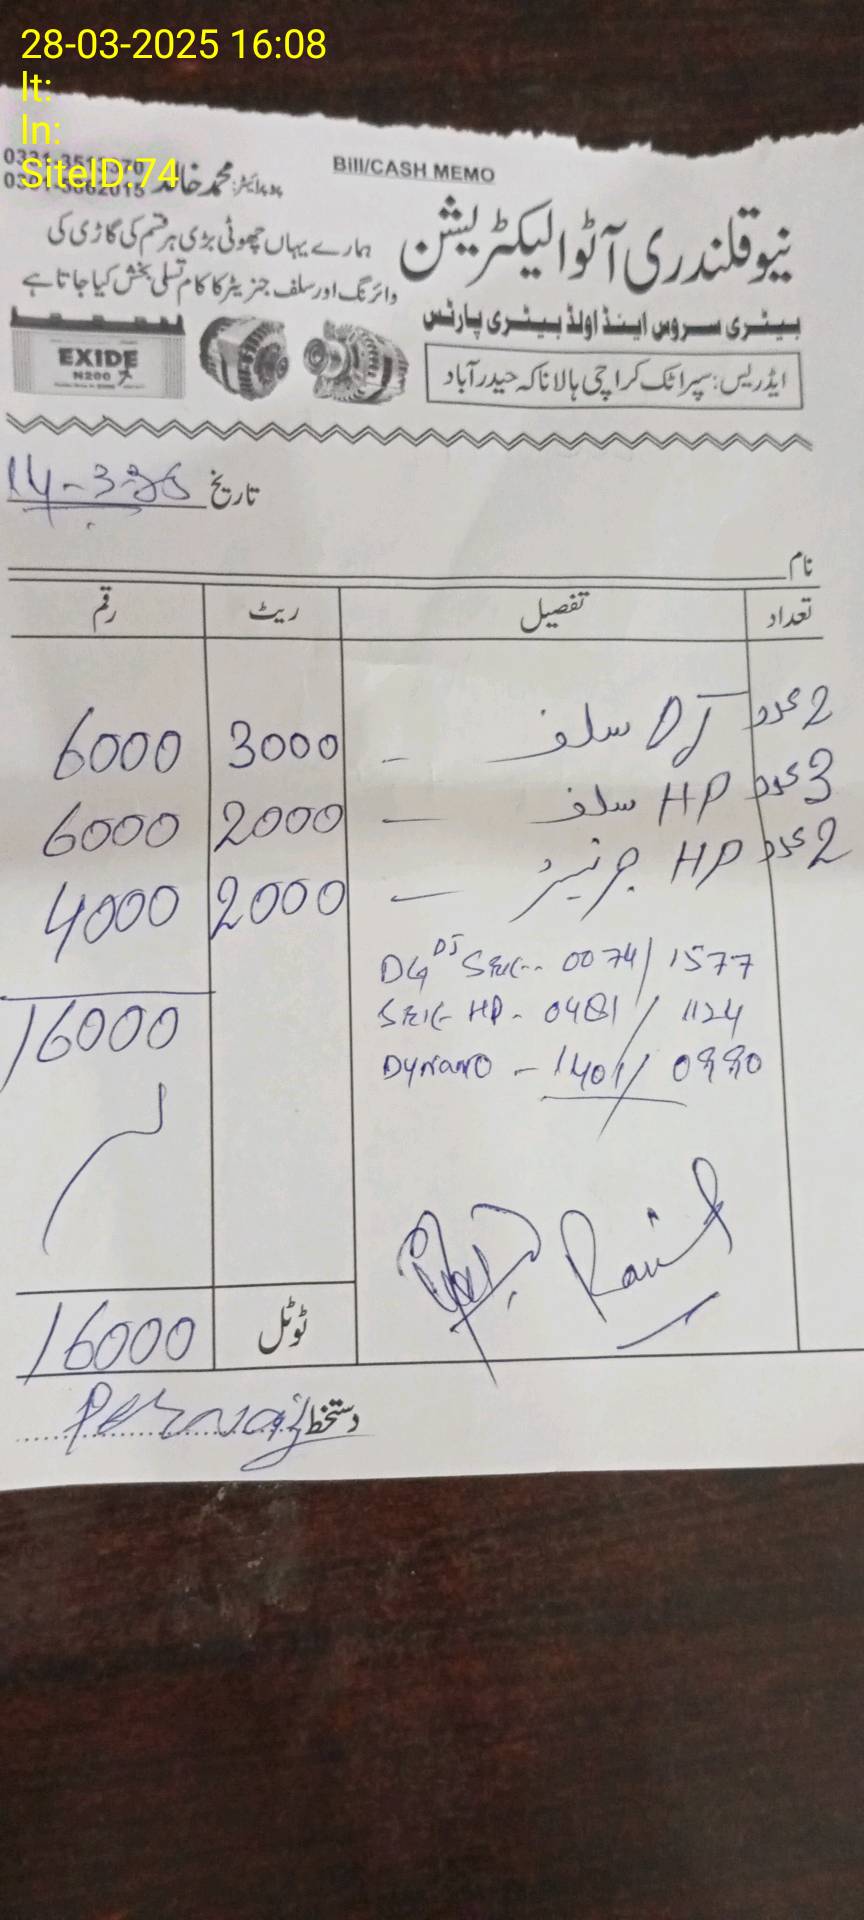 28-03-2025 16:08
lt:
ln:
SiteID:74
Bill/CASH MEMO
پروپرائیٹر: محمد خالد
نیو قلندری آٹو الیکٹریشن
ہمارے یہاں چھوٹی بڑی ہر قسم کی گاڑی کی
وائرنگ اور سلف جنریٹر کا کام تسلی بخش کیا جاتا ہے
بیٹری سروس اینڈ اولڈ بیٹری پارٹس
EXIDE
N200
ایڈریس: سپرا ٹک کراچی ہالا ناکہ حیدرآباد
تاریخ
نام
تعداد تفصیل ریٹ رقم
2 عدد DJ سلف - 3000 6000
3 عدد HP سلف - 2000 6000
2 عدد HP جرنیٹر - 2000 4000
16000
DG DJ Self-- 0074/1577
Self HP- 0481/1124
Dynamo - 1401/0880
ٹوٹل 16000
دستخط